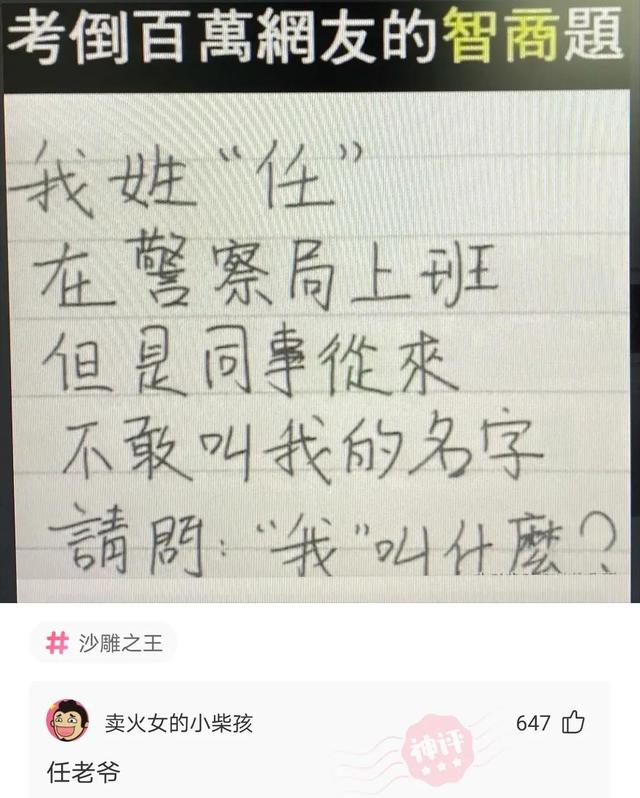 考倒百萬網友的智商題
我姓“任”
在警察局上班
但是同事從來
不敢叫我的名字
請問：“我”叫什麼？
# 沙雕之王
卖火女的小柴孩
647
神评
任老爷